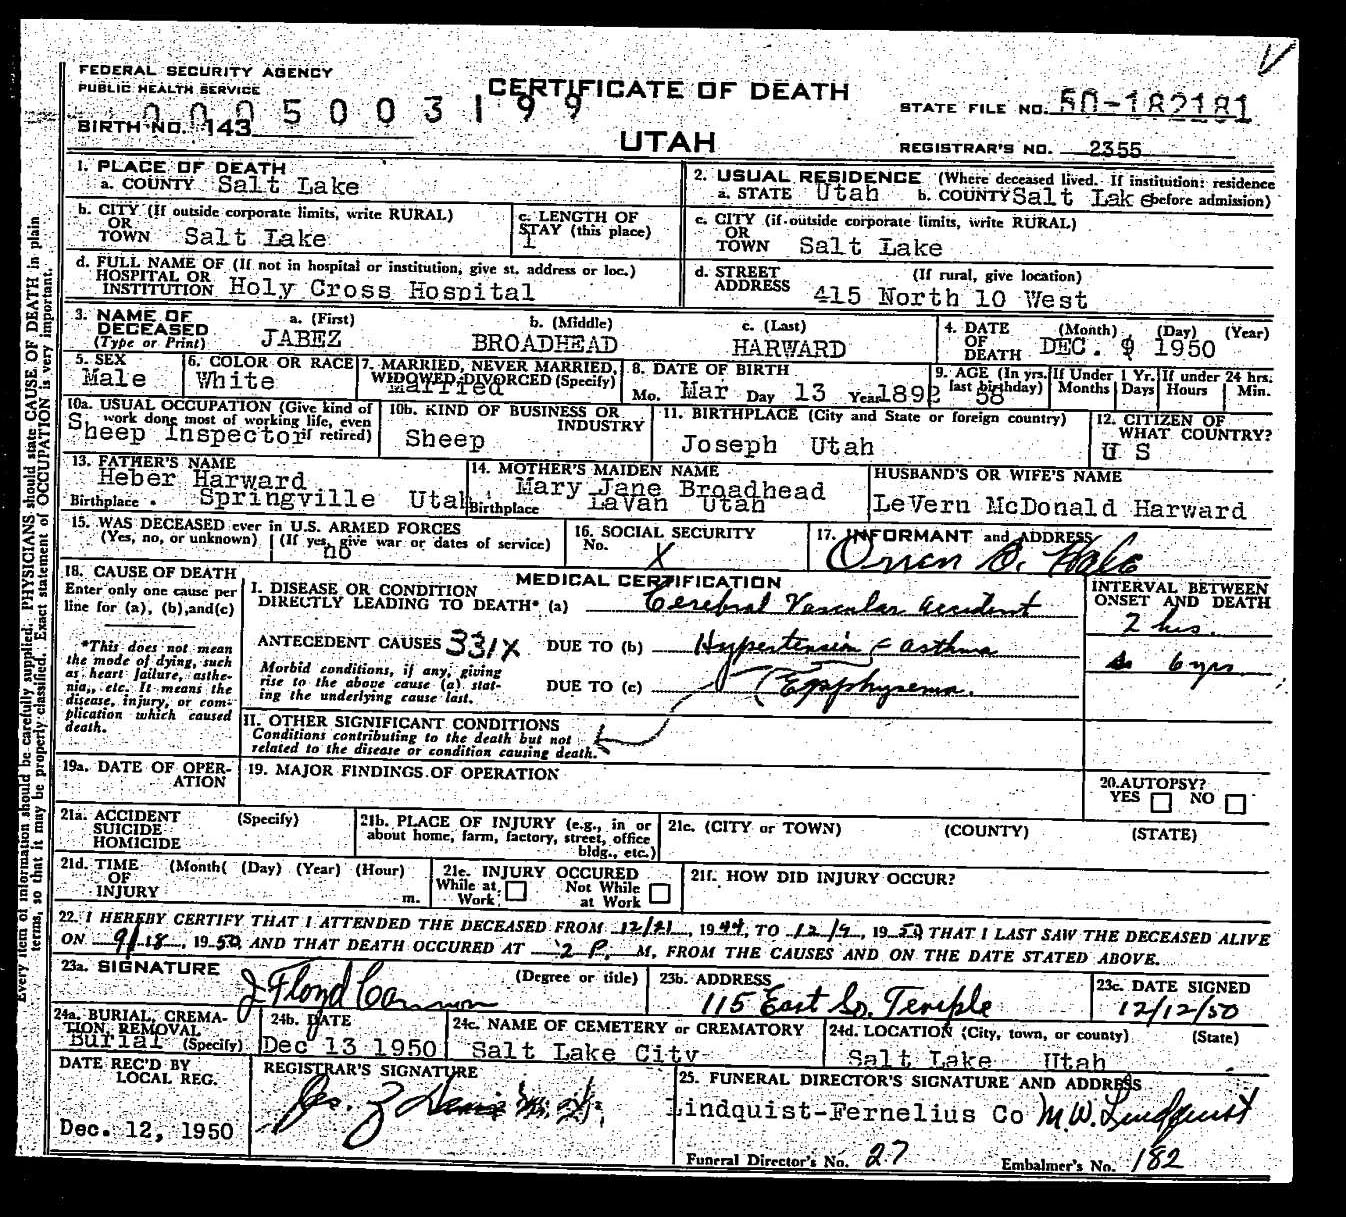 FEDERAL SECURITY AGENCY
PUBLIC HEALTH SERVICE
CERTIFICATE OF DEATH
0005003199
STATE FILE NO. 50-182181
BIRTH NO. 143
UTAH
REGISTRAR'S NO. 2355
1. PLACE OF DEATH
a. COUNTY Salt Lake
2. USUAL RESIDENCE (Where deceased lived. If institution: residence
a. STATE Utah b. COUNTY Salt Lake before admission)
b. CITY (If outside corporate limits, write RURAL)
OR
TOWN Salt Lake
c. LENGTH OF
STAY (this place)
1
c. CITY (if outside corporate limits, write RURAL)
OR
TOWN Salt Lake
d. FULL NAME OF (If not in hospital or institution, give st. address or loc.)
HOSPITAL OR
INSTITUTION Holy Cross Hospital
d. STREET (If rural, give location)
ADDRESS
415 North 10 West
3. NAME OF
DECEASED
(Type or Print)
a. (First)
JABEZ
b. (Middle)
BROADHEAD
c. (Last)
HARWARD
4. DATE (Month) (Day) (Year)
OF
DEATH DEC. 9 1950
5. SEX
Male
6. COLOR OR RACE
White
7. MARRIED, NEVER MARRIED,
WIDOWED, DIVORCED (Specify)
Married
8. DATE OF BIRTH
Mo. Mar Day 13 Year 1892
9. AGE (In yrs. last birthday)
58
If Under 1 Yr.
Months Days
If under 24 hrs.
Hours Min.
10a. USUAL OCCUPATION (Give kind of
work done most of working life, even
if retired)
Sheep Inspector
10b. KIND OF BUSINESS OR
INDUSTRY
Sheep
11. BIRTHPLACE (City and State or foreign country)
Joseph Utah
12. CITIZEN OF
WHAT COUNTRY?
U S
13. FATHER'S NAME
Heber Harward
Birthplace Springville Utah
14. MOTHER'S MAIDEN NAME
Mary Jane Broadhead
Birthplace LaVan Utah
HUSBAND'S OR WIFE'S NAME
LeVern McDonald Harward
15. WAS DECEASED ever in U.S. ARMED FORCES
(Yes, no, or unknown) (If yes, give war or dates of service)
no
16. SOCIAL SECURITY
No. X
17. INFORMANT and ADDRESS
Orren B. Hale
18. CAUSE OF DEATH
Enter only one cause per
line for (a), (b), and (c)
*This does not mean
the mode of dying, such
as heart failure, asthe-
nia, etc. It means the
disease, injury, or com-
plication which caused
death.
MEDICAL CERTIFICATION
I. DISEASE OR CONDITION
DIRECTLY LEADING TO DEATH* (a) Cerebral Vascular accident
ANTECEDENT CAUSES 331X DUE TO (b) Hypertension & asthma
Morbid conditions, if any, giving
rise to the above cause (a) stat-
ing the underlying cause last.
DUE TO (c)
INTERVAL BETWEEN
ONSET AND DEATH
2 hrs.
6 yrs.
II. OTHER SIGNIFICANT CONDITIONS
Conditions contributing to the death but not
related to the disease or condition causing death.
19a. DATE OF OPER-
ATION
19. MAJOR FINDINGS OF OPERATION
20. AUTOPSY?
YES NO
21a. ACCIDENT (Specify)
SUICIDE
HOMICIDE
21b. PLACE OF INJURY (e.g., in or
about home, farm, factory, street, office
bldg., etc.)
21c. (CITY or TOWN) (COUNTY) (STATE)
21d. TIME (Month( (Day) (Year) (Hour)
OF
INJURY m.
21e. INJURY OCCURED
While at Work
Not While at Work
21f. HOW DID INJURY OCCUR?
22. I HEREBY CERTIFY THAT I ATTENDED THE DECEASED FROM 12/21, 1944, TO 12/9, 1950 THAT I LAST SAW THE DECEASED ALIVE
ON 9/18, 1950, AND THAT DEATH OCCURED AT 2 P. M, FROM THE CAUSES AND ON THE DATE STATED ABOVE.
23a. SIGNATURE (Degree or title)
J Floyd Cannon
23b. ADDRESS
115 East So. Temple
23c. DATE SIGNED
12/12/50
24a. BURIAL, CREMA-
TION, REMOVAL
Burial (Specify)
24b. DATE
Dec 13 1950
24c. NAME OF CEMETERY or CREMATORY
Salt Lake City
24d. LOCATION (City, town, or county) (State)
Salt Lake Utah
DATE REC'D BY
LOCAL REG.
Dec. 12, 1950
REGISTRAR'S SIGNATURE
25. FUNERAL DIRECTOR'S SIGNATURE AND ADDRESS
Lindquist-Fernelius Co M.W. Lindquist
Funeral Director's No. 27 Embalmer's No. 182
Every item of information should be carefully supplied. PHYSICIANS should state CAUSE OF DEATH in plain
terms, so that it may be properly classified. Exact statement of OCCUPATION is very important.